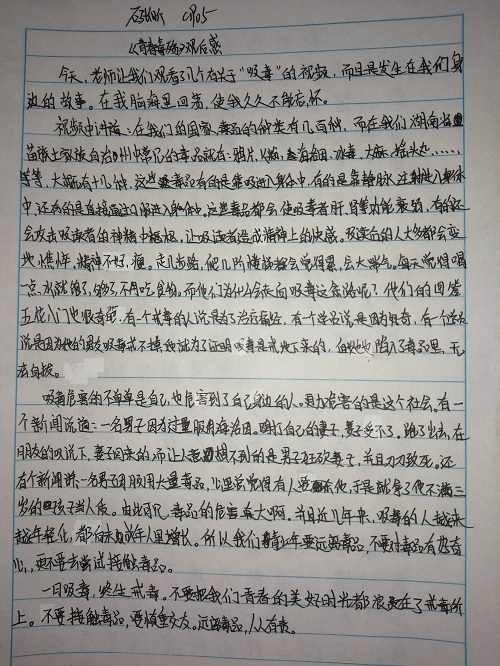 CP05
《青春毒殇》观后感
今天,老师让我们观看了几个有关于“吸毒”的视频,而且是发生在我们身
边的故事。在我脑海里回荡,使我久久不能忘怀。
视频中讲道:在我们的国家毒品的种类有几百种,而在我们湖南省
苗族土家族自治州中常见的毒品就有:鸦片、K粉、海洛因、冰毒、大麻、摇头丸……
等等,大概有十几种,这些毒品有的是靠吸进入身体中,有的是靠静脉注射进入身体
中,还有的是直接通过口服进入身体,这些毒品都会使吸毒者肝、肾功能衰弱,有的还
会攻击吸毒者的神经中枢,让吸毒者造成精神上的快感。吸毒后的人大多都会变
地憔悴,精神不好,瘦。走几步路,爬几阶楼梯都会觉得累,会大喘气。每天觉得喝
一点水就够了,不用吃食物。而他们为什么会走向吸毒这条路呢?他们的回答
五花八门也很奇葩,有个戒毒的人说是为了治疗癌症,有一个学员说是因为好奇,有一个
说是因为他的男友吸毒戒不掉他就为了证明吸毒是戒地下来的,但她也陷入了毒品里,无
法自拔。
吸毒危害的不单单是自己,也危害到了自己身边的人。更加危害的是这个社会。有
一个新闻说道:一名男子因为过量服用海洛因。殴打自己的妻子,妻子受不了。跑了出去,在
朋友的劝说下,妻子回来的,而让人意想不到的是男子狂砍妻子,并且刀刀致死。还
有个新闻讲:一名男子因服用大量毒品,心里总觉得有人要杀他,于是就拿了他不满三
岁的孩子当人质。由此可见,毒品的危害有大啊。并且近几年来,吸毒的人越来
越年轻化,都有未成年人的增长。所以我们青少年要远离毒品,不要对毒品有好奇
心,更不要去尝试接触毒品。
一日吸毒,终生戒毒。不要把我们青春的美好时光都浪费在了戒毒所
上。不要接触毒品,要慎重交友。远离毒品,人人有责。